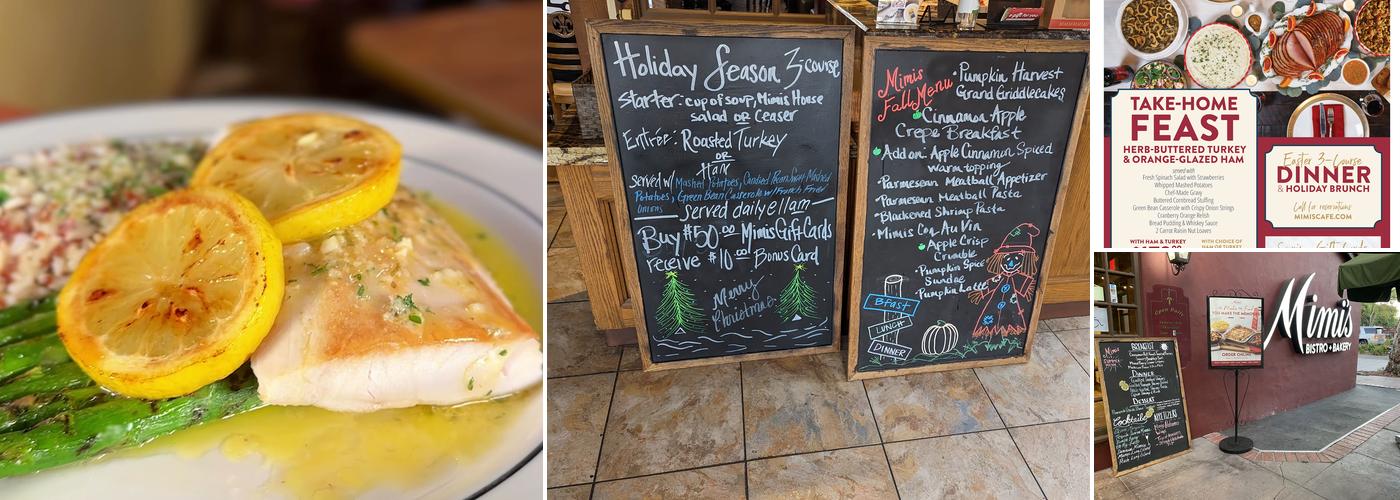 Holiday Season 3 course
Starter: cup of soup, Mimis House
salad or Ceaser
Entrée: Roasted Turkey
or
Ham
Served w/ Mashed Potatoes, Candied Pecan Sweet Mashed
Potatoes, Green Bean Casserole w/ French Fried
Onions
served daily @ 11am
Buy $50.00 Mimis Gift Cards
receive $10.00 Bonus Card
Merry
Christmas
Mimis
Fall Menu
•Pumpkin Harvest
Grand Griddlecakes
Cinnamon Apple
Crepe Breakfast
Add on: Apple Cinnamon Spiced
warm topping
•Parmesean Meatball Appetizer
•Parmesean Meatball Pasta
•Blackened Shrimp Pasta
•Mimis Coq Au Vin
Apple Crisp
Crumble
•Pumpkin Spice
Sundae
Pumpkin Latte
BFast
LUNCH
DINNER
TAKE-HOME
FEAST
HERB-BUTTERED TURKEY
& ORANGE-GLAZED HAM
served with
Fresh Spinach Salad with Strawberries
Whipped Mashed Potatoes
Chef-Made Gravy
Buttered Cornbread Stuffing
Green Bean Casserole with Crispy Onion Strings
Cranberry Orange Relish
Bread Pudding & Whiskey Sauce
2 Carrot Raisin Nut Loaves
WITH HAM & TURKEY
WITH CHOICE OF
HAM OR TURKEY
Easter 3-Course
DINNER
& HOLIDAY BRUNCH
Call for reservations
MIMISCAFE.COM
Mimis
BISTRO + BAKERY
YOU MAKE THE MEMORIES
ORDER ONLINE
Open Daily
Mimis
BREAKFAST
DINNER
DESSERT
Cocktails